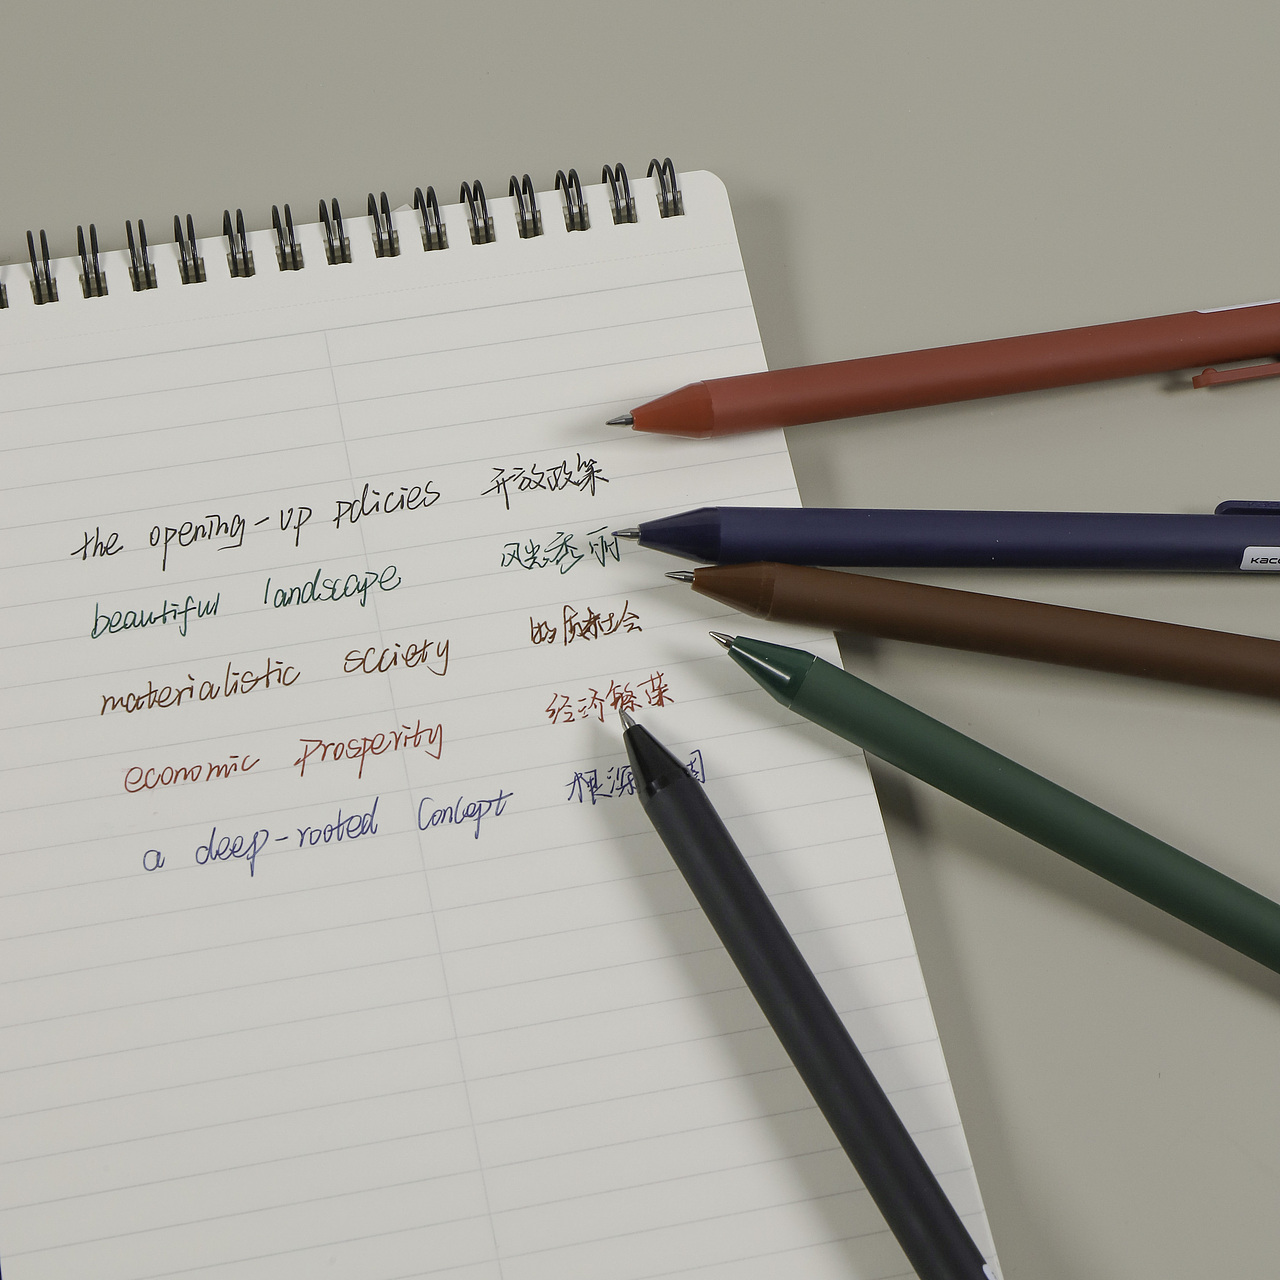 the opening-up policies 开放政策
beautiful landscape 风光秀丽
materialistic society 物质社会
economic prosperity 经济繁荣
a deep-rooted concept 根深 固
KACO